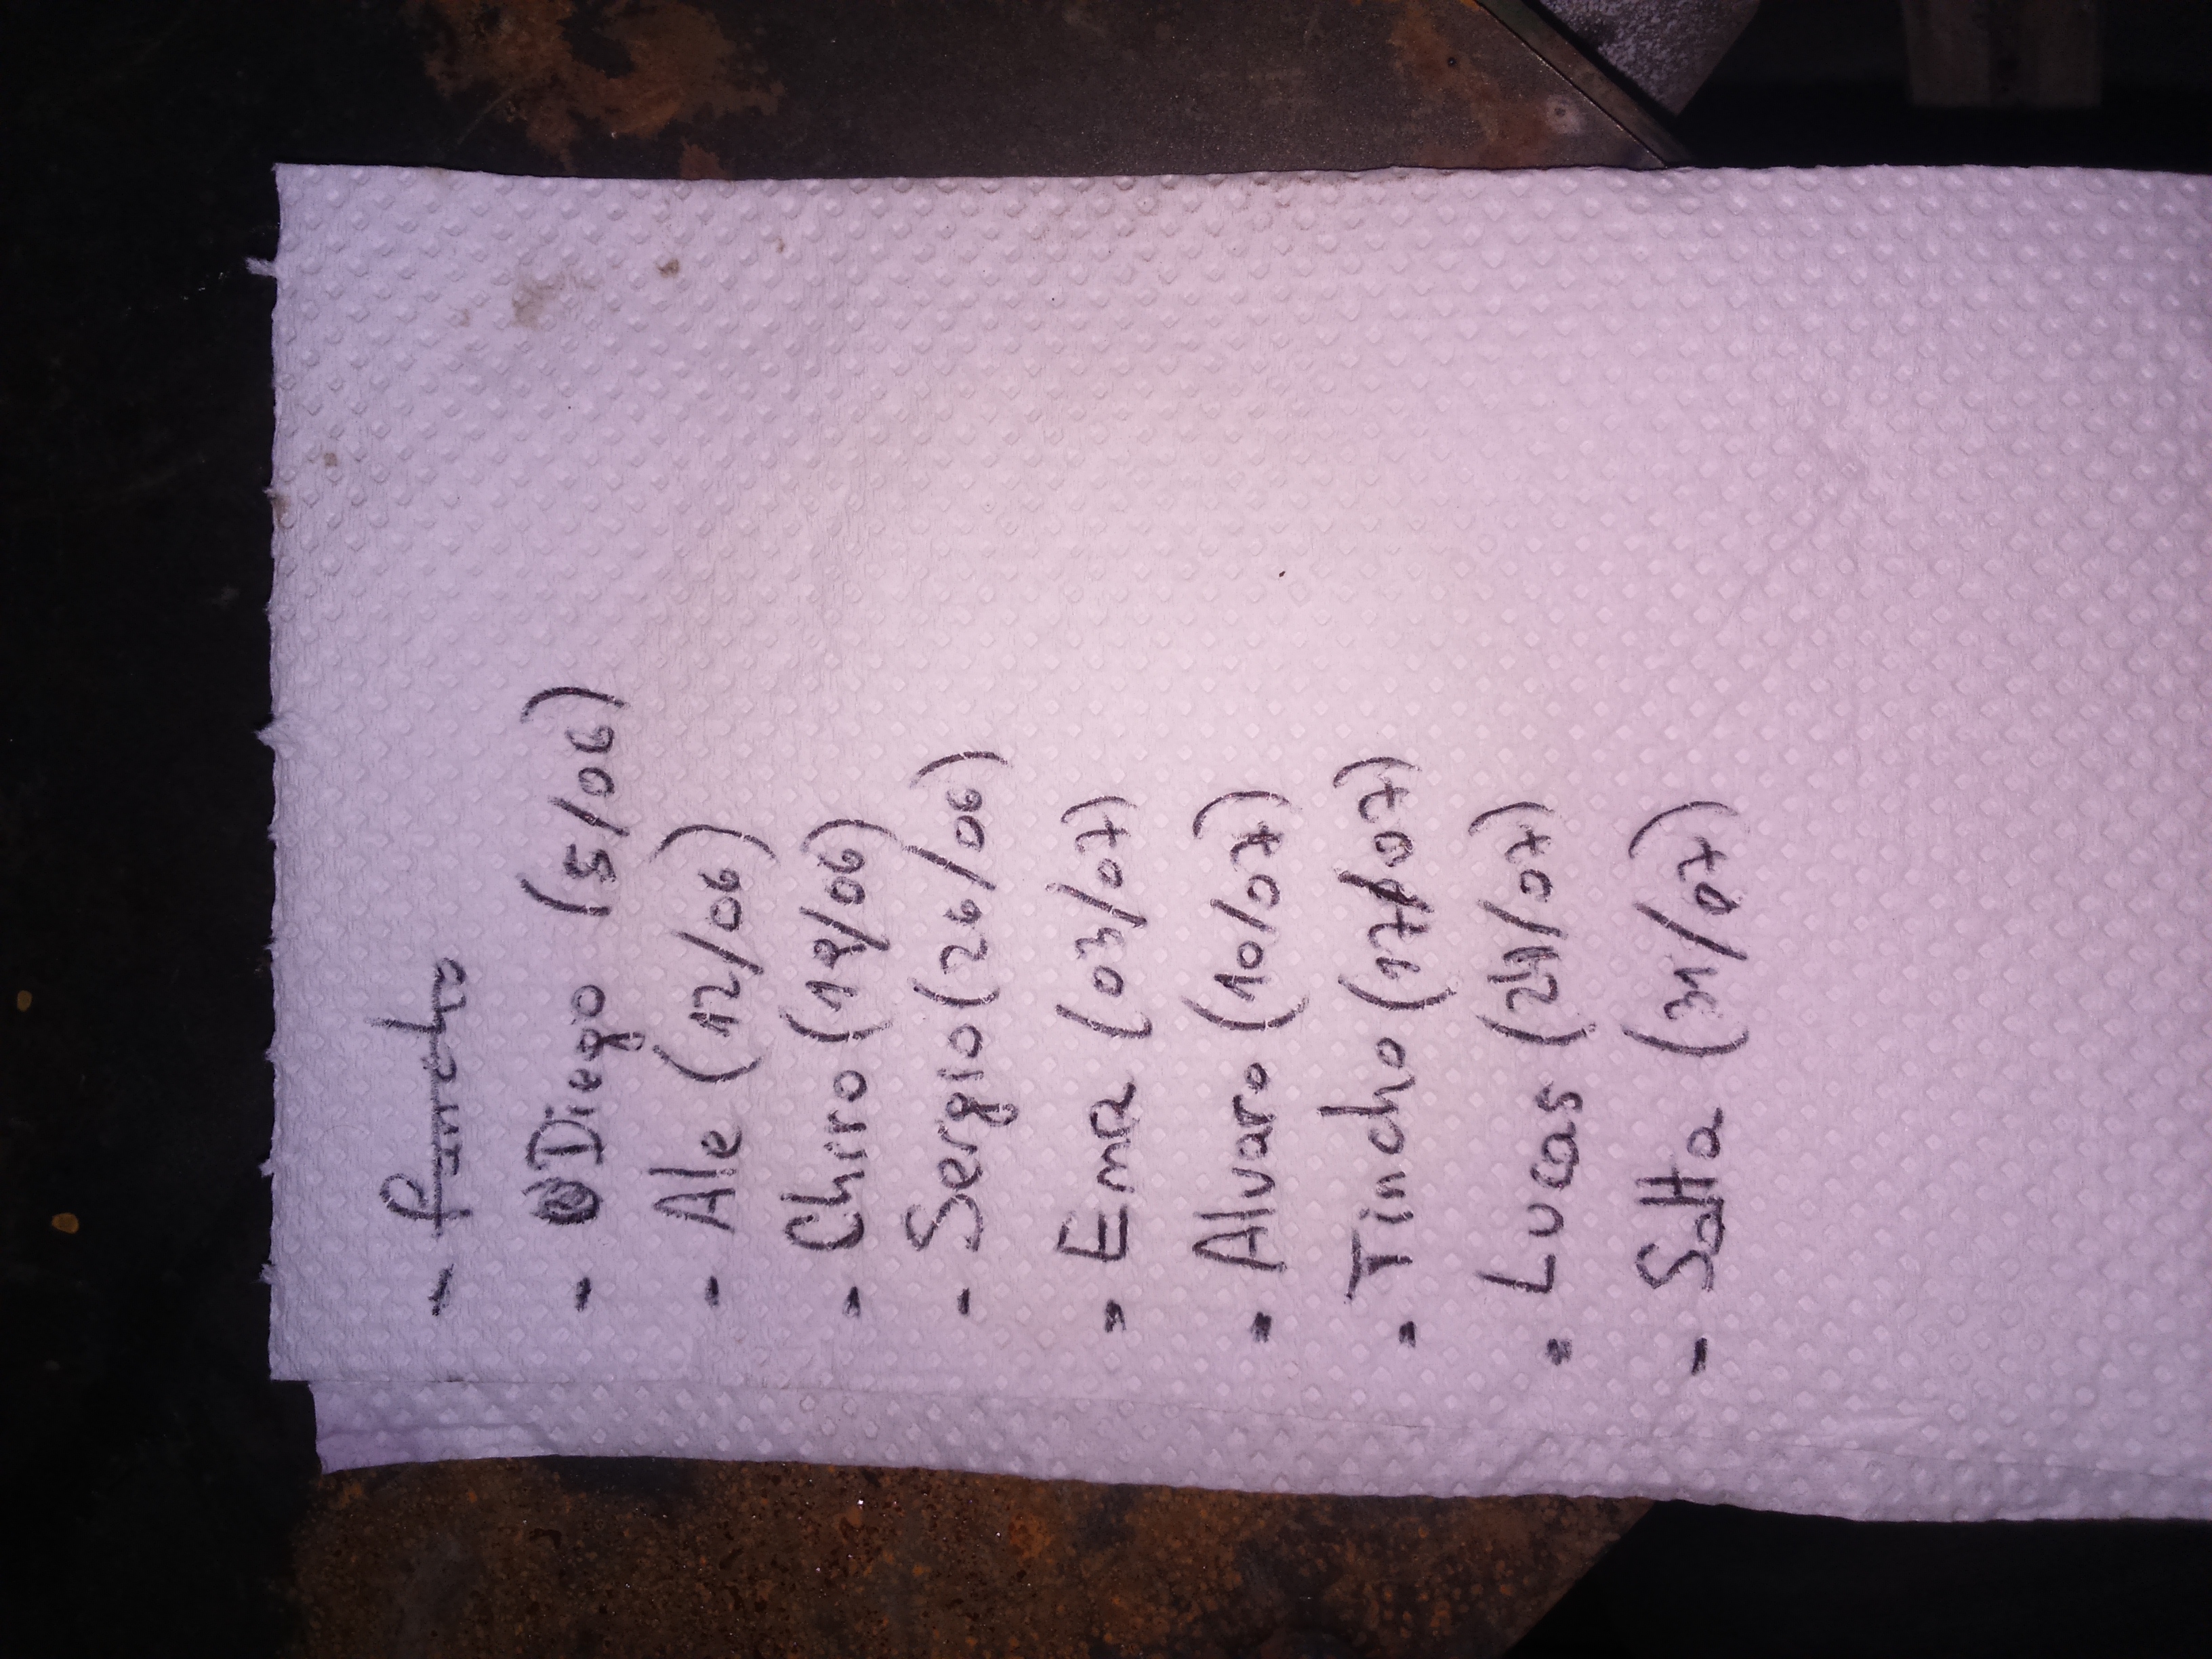 - Pancho
- Diego (5/06)
- Ale (12/06)
- Chirro (19/06)
- Sergio (26/06)
- Ema (03/07)
- Alvaro (10/07)
- Tincho (17/07)
- Lucas (24/07)
- Salta (31/07)